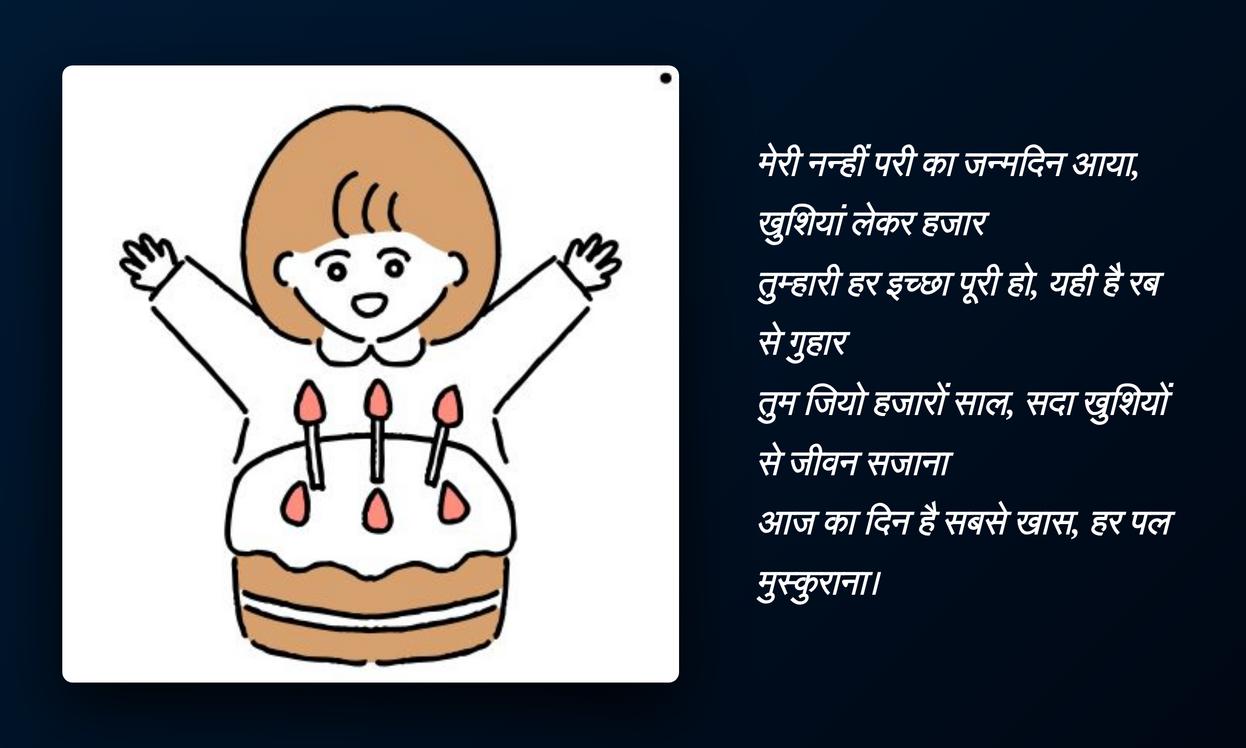 मेरी नन्हीं परी का जन्मदिन आया,
खुशियां लेकर हजार
तुम्हारी हर इच्छा पूरी हो, यही है रब
से गुहार
तुम जियो हजारों साल, सदा खुशियों
से जीवन सजाना
आज का दिन है सबसे खास, हर पल
मुस्कुराना।